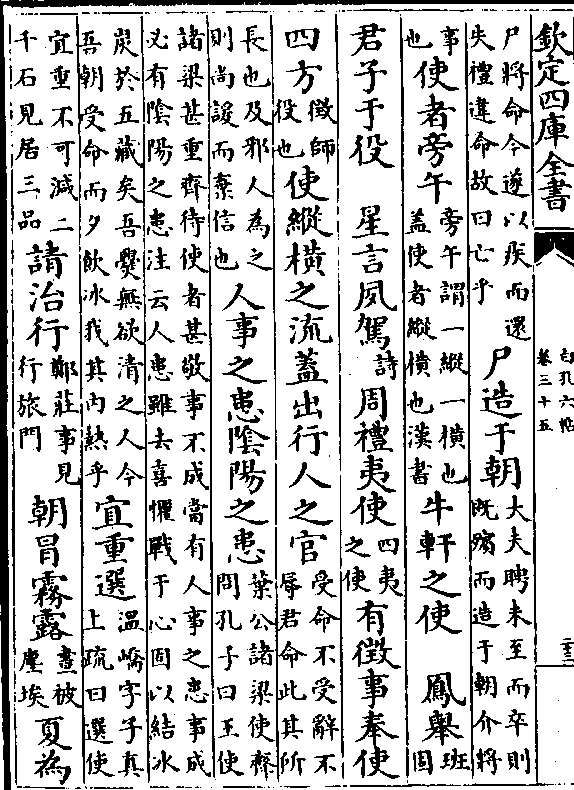 欽定四庫全書
白孔六帖
卷三十五
尸將命今遂以疾而還
失禮違命故曰亡乎
尸造于朝
大夫聘未至而卒則
既殯而造于朝介將
事
也
使者旁午
旁午謂一縱一橫也
蓋使者縱橫也漢書
牛軒之使
鳳舉
班
固
君子于役
星言夙駕
詩
周禮夷使
四夷
之使
有徵事奉使
四方
徵師
役也
使縱橫之流蓋出行人之官
受命不受辭不
辱君命此其所
長也及邪人為之
則尚諼而棄信也
人事之患陰陽之患
葉公諸梁使齊
問孔子曰王使
諸梁甚重齊待使者甚敬事不成當有人事之患事成
必有陰陽之患注云人患雖去喜懼戰于心固以結冰
炭於五藏矣吾爨無欲清之人今
吾朝受命而夕飲冰我其内熱乎
宜重選
溫嶠字子真
上疏曰選使
宜重不可減二
千石見居三品
請治行
鄭莊事見
行旅門
朝冒霧露
晝被
塵埃
夏為